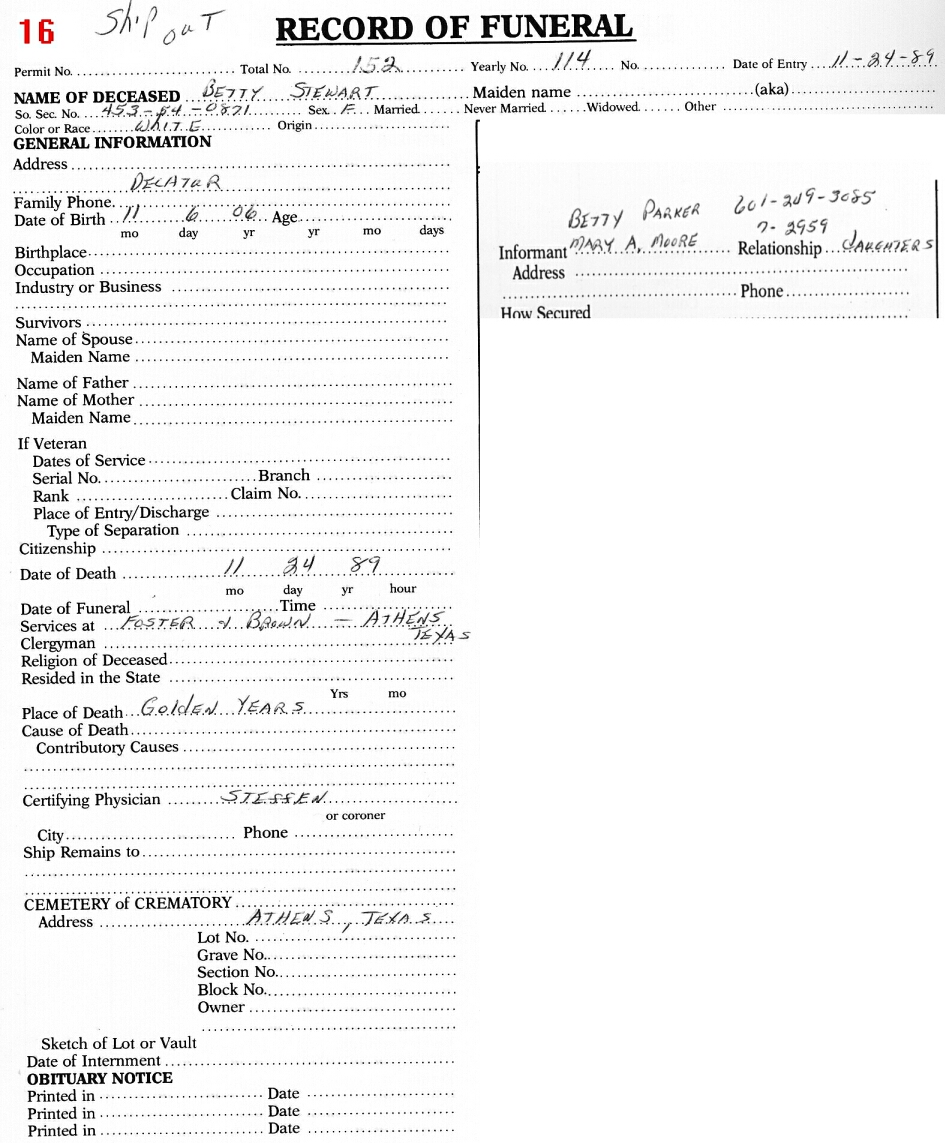 16 Ship out RECORD OF FUNERAL
Permit No. Total No. 152 Yearly No. 114 No. Date of Entry 11-24-89
NAME OF DECEASED BETTY STEWART Maiden name (aka)
So. Sec. No. 453-54-0821 Sex F Married Never Married Widowed Other
Color or Race WHITE Origin
GENERAL INFORMATION
Address
DECATUR
Family Phone
Date of Birth 11 6 06 Age
mo day yr yr mo days
Birthplace
Occupation
Industry or Business
Survivors
Name of Spouse
Maiden Name
Name of Father
Name of Mother
Maiden Name
If Veteran
Dates of Service
Serial No. Branch
Rank Claim No.
Place of Entry/Discharge
Type of Separation
Citizenship
Date of Death 11 24 89
mo day yr hour
Date of Funeral Time
Services at FOSTER & BROWN - ATHENS
TEXAS
Clergyman
Religion of Deceased
Resided in the State
Yrs mo
Place of Death GOLDEN YEARS
Cause of Death
Contributory Causes
Certifying Physician STEFFEN
or coroner
City Phone
Ship Remains to
CEMETERY of CREMATORY
Address ATHENS, TEXAS
Lot No.
Grave No.
Section No.
Block No.
Owner
Sketch of Lot or Vault
Date of Internment
OBITUARY NOTICE
Printed in Date
Printed in Date
Printed in Date
BETTY PARKER 601-249-3085
7-2959
Informant MARY A. MOORE Relationship DAUGHTERS
Address
Phone
How Secured